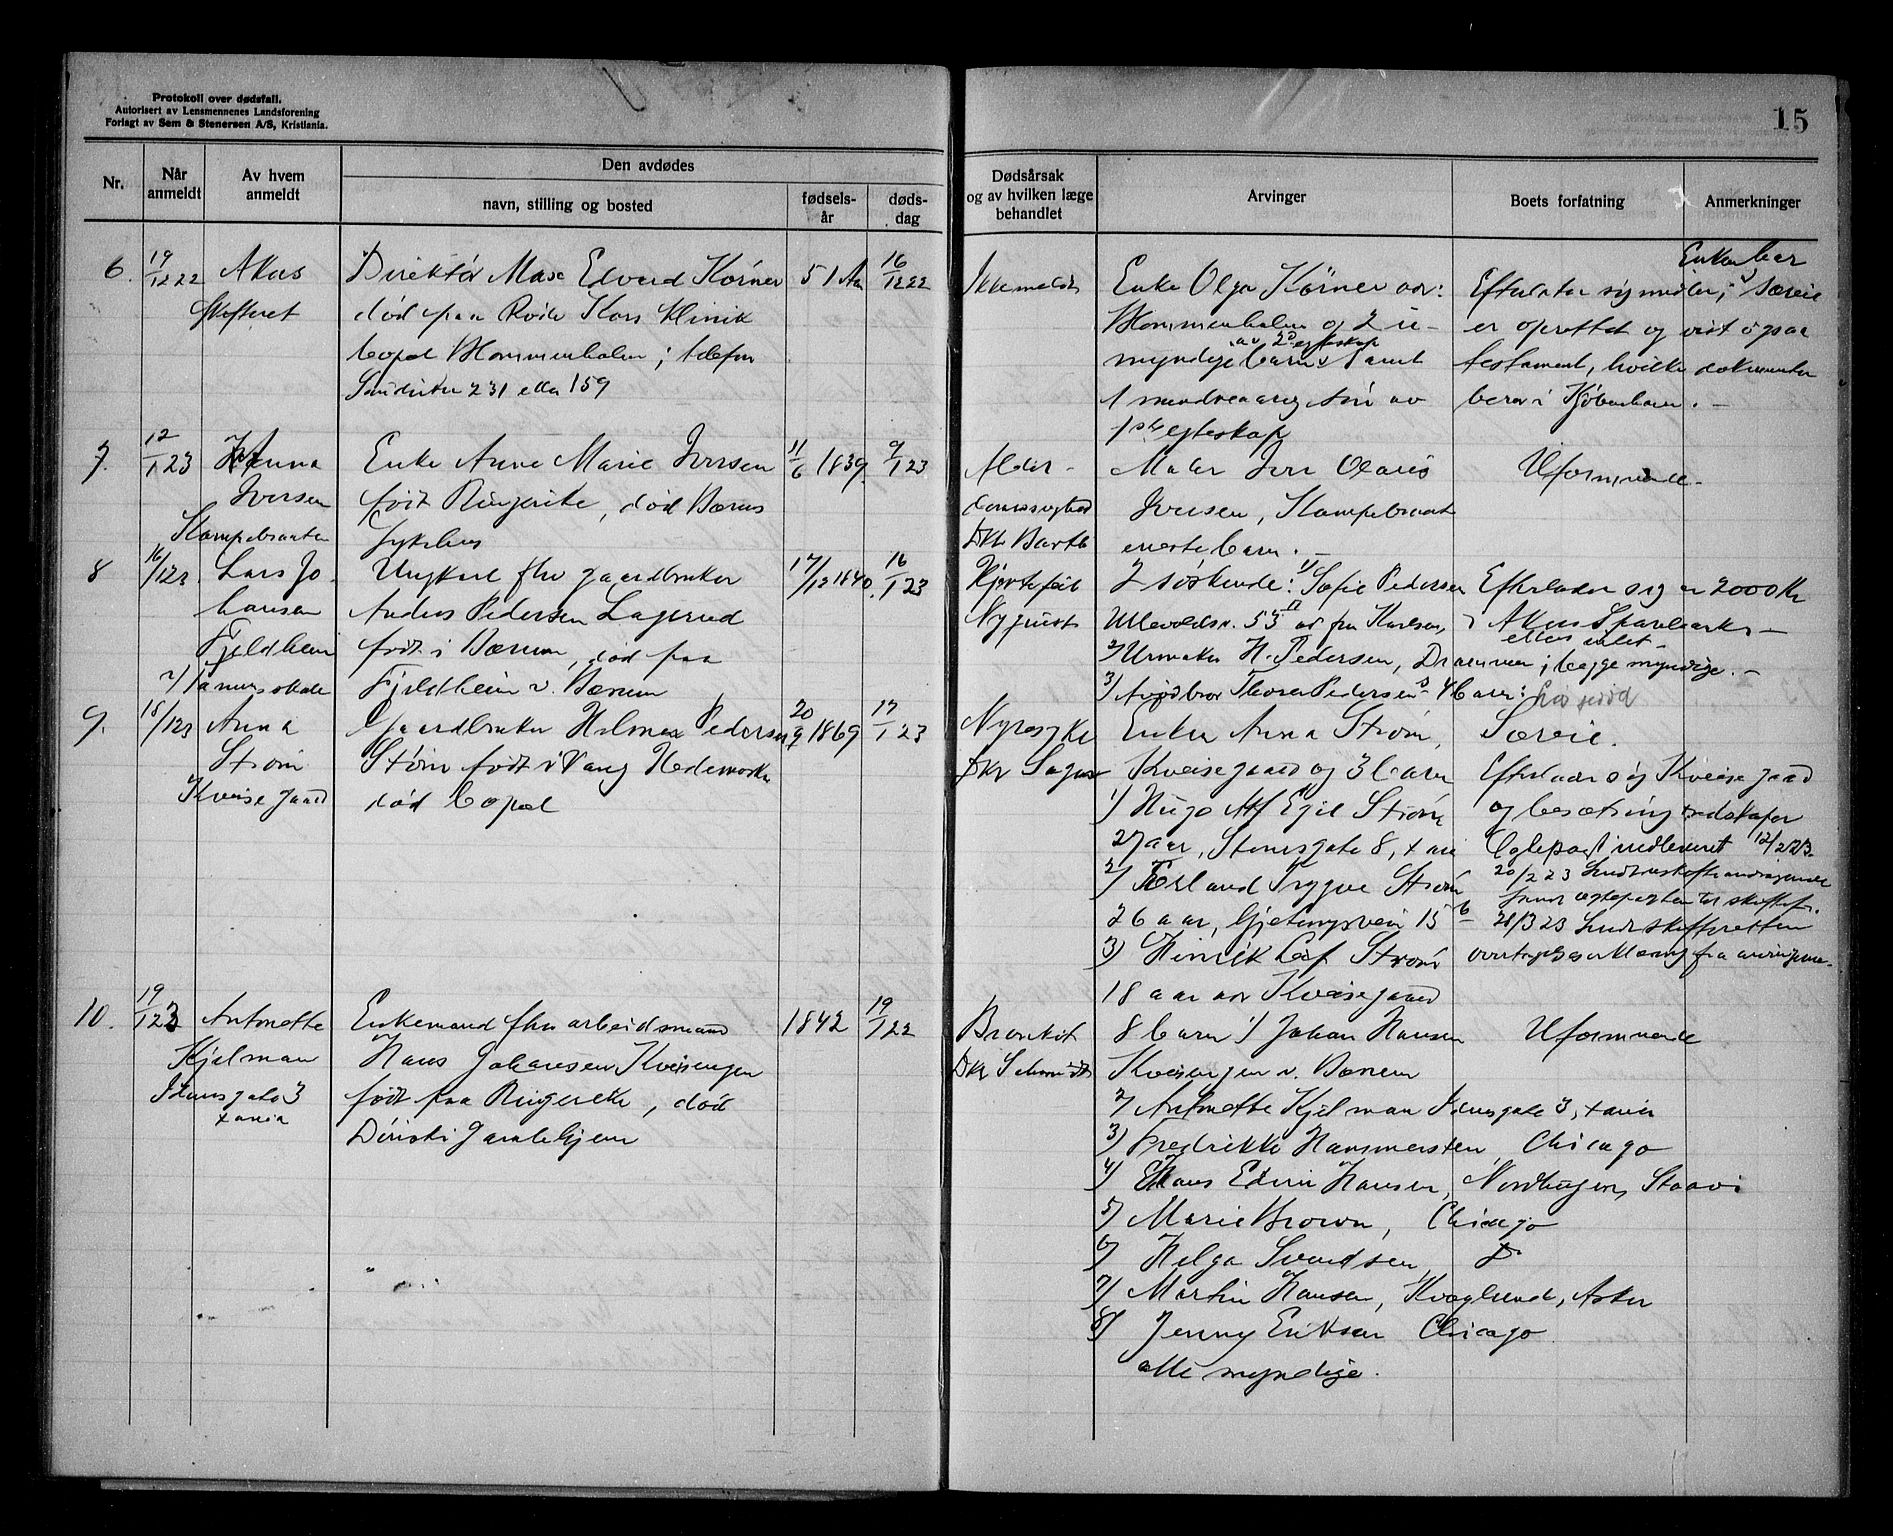 Protokoll over dødsfall.
Autorisert av Lensmennenes Landsforening
Forlagt av Sem & Stenersen A/S, Kristiania.
15
Nr.
Når anmeldt
Av hvem anmeldt
Den avdødes
navn, stilling og bosted
fødselsår
dødsdag
Dødsårsak og av hvilken læge behandlet
Arvinger
Boets forfatning
Anmerkninger
6. 19/12 22 Akers
Skifteret
Direktør Max Edvard Körner
død paa Røde Kors Klinik
bopel Blommenholm; telefon
Sandvika 231 eller 159
51 Aar
16/12 22
Ikke meldt
Enke Olga Körner adr:
Blommenholm og 2 u-
av 2D egteskap
myndige barn samt
1 mindreaarig søn av
1ste egteskap
Enken ber
Efterlater sig midler; Særeie
er oprettet og vist ogsaa
testament, hvilke dokumenter
beror i Kjöbenhavn. -
7. 12/1 23 Anna
Iversen
Kampebraaten
Enke Anne Marie Iversen
født Ringerike, død Bærums
Sykehus
11/6 1839
9/1 23
Alder-
domssvaghed
Dr. Barth
Maler Iver Olaves
Iversen, Kampebraat
eneste barn. -
Uformuende.
8 16/1 23. Lars Jo-
hansen
Fjeldheim
v/ Tanumskole
Ungkarl fhv gaardbruker
Anders Pedersen Lagerud
født i Bærum, død paa
Fjeldheim v. Bærum
17/12 1840.
16/1 23
Hjertefeil
Nyquist
2 søskende: 1/ Sofie Pedersen
Ullevoldsv. 53 II ad fru Karlsen,
2/ Urmaker H. Pedersen, Drammen; begge myndige. -
3/ Avdød bror Thorer Pedersens 4 barn:
Efterlader sig ca 2000 Kr
i Akers Sparebank -
ellers intet -
9. 18/1 23 Anna
Strøm
Kveise gaard
Gaardbruker Hilmar Pedersen
Strøm født i Vang Hedemarken
død bopæl
20/9 1869
17/1 23
Nyresyke
Dr. Sagen
Enke Anna Strøm,
Kveisegaard og 3 barn
1) Hugo Alf Egil Strøm
27 aar, Stensgate 8, xania
2) Erland Trygve Strøm
26 aar, Gjetemyrsvei 15 b
3) Henrik Leif Strøm
18 aar adr Kveisegaard
Særeie.
Efterlader sig Kveise gaard
og besætning redskaper
Egtepagt indleveret 12/2 23.
20/2 23
28/3 23 Sendt skifteretten
10. 19/1 23 Antonette
Kjelman
Stensgate 3
xania
Enkemand fhv arbeidsmand
Hans Johansen Kveisengen
født paa Ringerike, død
Dönski Gamlehjem
1842
19/1 22
Bronkit
Dr. Schmidt
8 barn 1/ Johan Hansen
Kveisengen v. Bærum
2/ Antonette Kjelman Stensgate 3, xania
3) Fredrikke Hansmersten, Chicago
4) Hans Edvin Hansen, Nordhugen,
5) Marie Brown, Chicago
6) Helga Svendsen
7) Martin Hansen, Kvæglund, Asker
8) Jenny Eriksen Chicago.
alle myndige.